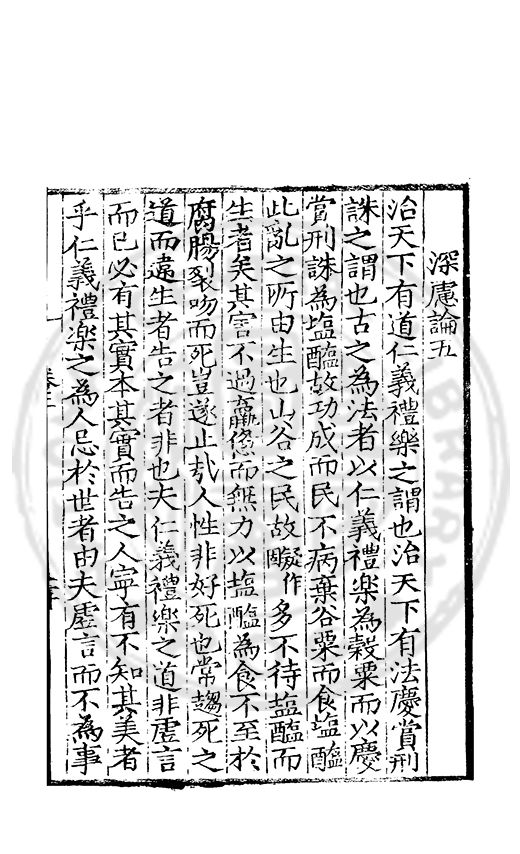 深慮論五
治天下有道仁義禮樂之謂也治天下有法慶賞刑
誅之謂也古之為法者以仁義禮樂為穀粟而以慶
賞刑誅為塩醯故功成而民不病棄谷粟而食塩醯
此亂之所由生也山谷之民故礙作多不待塩醯而
生者矣其害不過羸憊而無力以塩醯為食不至於
腐腸裂吻而死豈遂止㢤人性非好死也常趨死之
道而遠生者告之者非也夫仁義禮樂之道非虛言
而已必有其實本其實而告之人寧有不知其美者
乎仁義禮樂之為人忌於世者由夫虛言而不為事